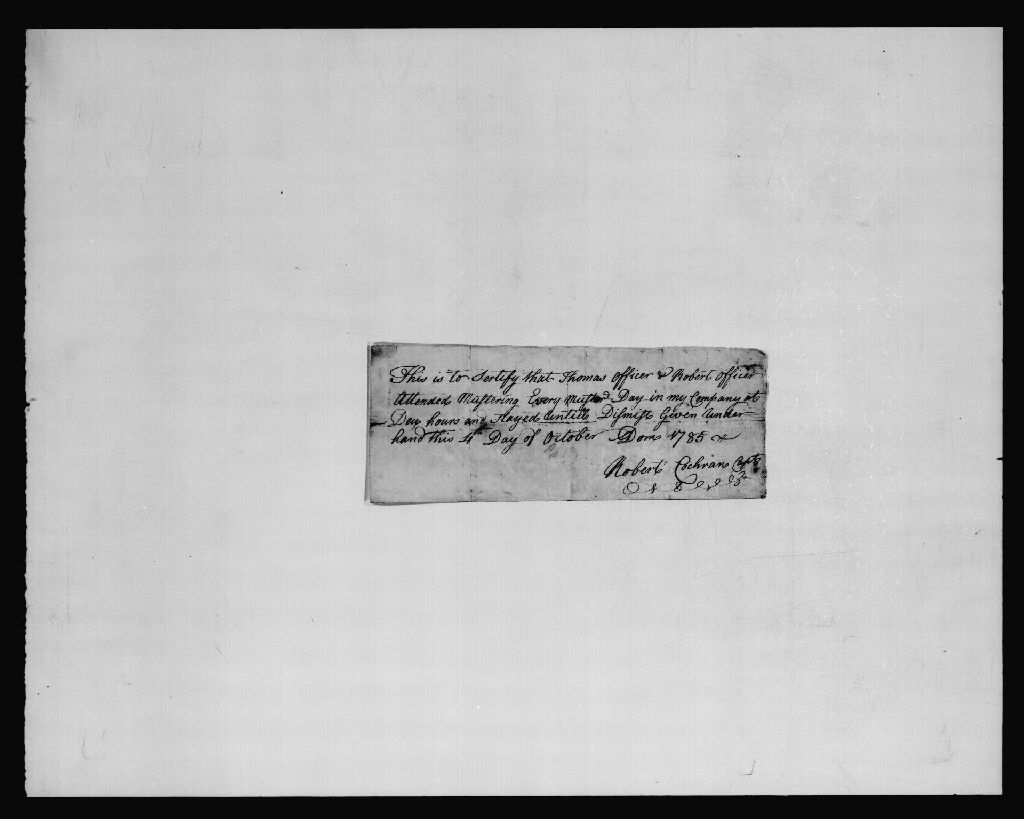 This is to Sertify that Thomas Officer & Robert Officer
Attended Mustering Every Must.d Day in my Company at
Dew hours and Stayed untill Dismist Given under
hand this 4th Day of October Dom 1785
Robert Cochran Capt